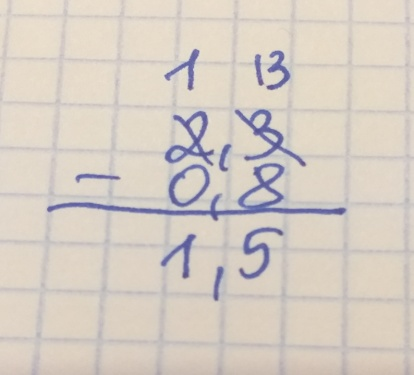 1 13
2,3
- 0,8
1,5